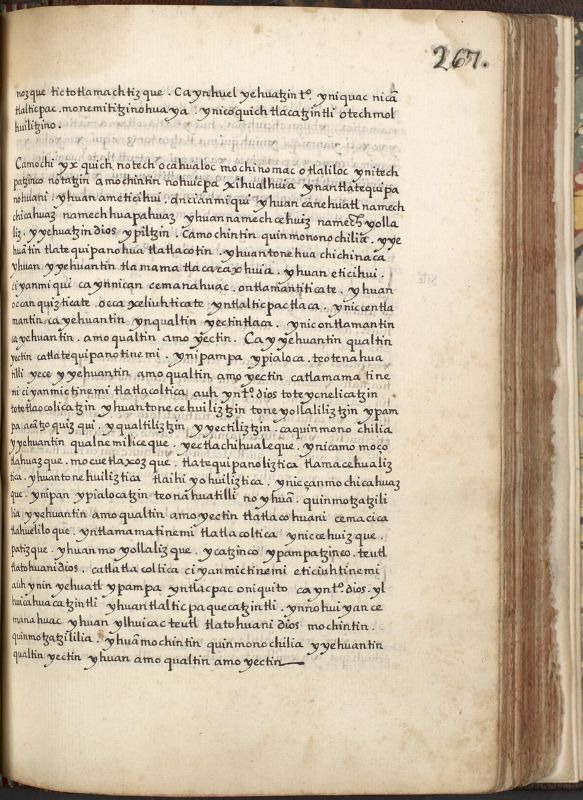 267.
nozque tictotlamachtizque. Ca yn huel yehuatzin tº. yniquac nicã
tlalticpac. monemititzinohuaya. ynicoquichtlacatzintli otechmol
huilitzino.
Ca mochi yxquich notech ocahualoc mochi nomac otlaliloc ynitech
patzinco notatzin amochintin nohuicpa xihualhuia ynantlatequipa
nohuani. yhuan ameticihui. yncianmiqui yhuan ca nehuatl namech
chicahuaz namechhuapahuaz yhuan namechcehuiz namech yolla
liz. yyehuatzin dios ypiltzin. Ca mochintin quinmononochilia. yye
huãtin tlatequipanohua tlatlacotin. yhuan tonehua chichinaca
yhuan yyehuantin tlamama tlacacaxhuia. yhuan eticihui.
ciyanmiqui ca ynnican cemanahuac. ontlamantiticate. yhuan
occanquizticate. occa xeliuhticate yntlalticpactlaca. yniccentla
mantin ca yehuantin ynqualtin yectintlaca. yniconntlamantin
ca yehuantin. amo qualtin amo yectin. Ca yyehuantin qualtin
yectin catlatequipanotinemi. ynipampa ypialoca. teotenahua
tilli yece yyehuantin amo qualtin amo yectin catlamamatine
mi ciyanmictinemi tlatlacoltica auh yn tº dios toteycnelicatzin
totetlaocolicatzin yhuan tonecehuilizitzin toneyollalilizitzin ypam
pa quizqui. yqualtilitzin yyectilitzin. caquinmonochilia
yyehuantin qualnemiliceque. yectlachihualeque. ynic amo moço
tlahuazque. mocuetlaxozque. tlatequipanoliztica tlamacehualiz
tica. yhuan tonehuiliztica tlaihiyohuiliztica. yniccan mochicahuaz
que. ynipan ypialocatzin teonahuatilli no yhuã. quinmotzatzili
lia yyehuantin amo qualtin amo yectin tlatlacohuani cemacica
tlahueliloque. yntlamamatinemi tlatlacoltica yniccehuizque.
patizque. yhuan moyollalizque. ycatzinco ypampatzinco. teutl
tlatohuani dios. catlatlacoltica ciyanmictinemi eticiuhtinemi
auh ynin yehuatl ypampa yntlacpac oniquito ca yn tº dios. yl
huicahuacatzintli yhuan tlalticpaquecatzintli. ynnohuiyan ce
manahuac yhuan ylhuicac teutl tlatohuani dios mochintin.
quinmotzatzililia. yhuã mochintin quinmonochilia yyehuantin
qualtin yectin yhuan amo qualtin amo yectin